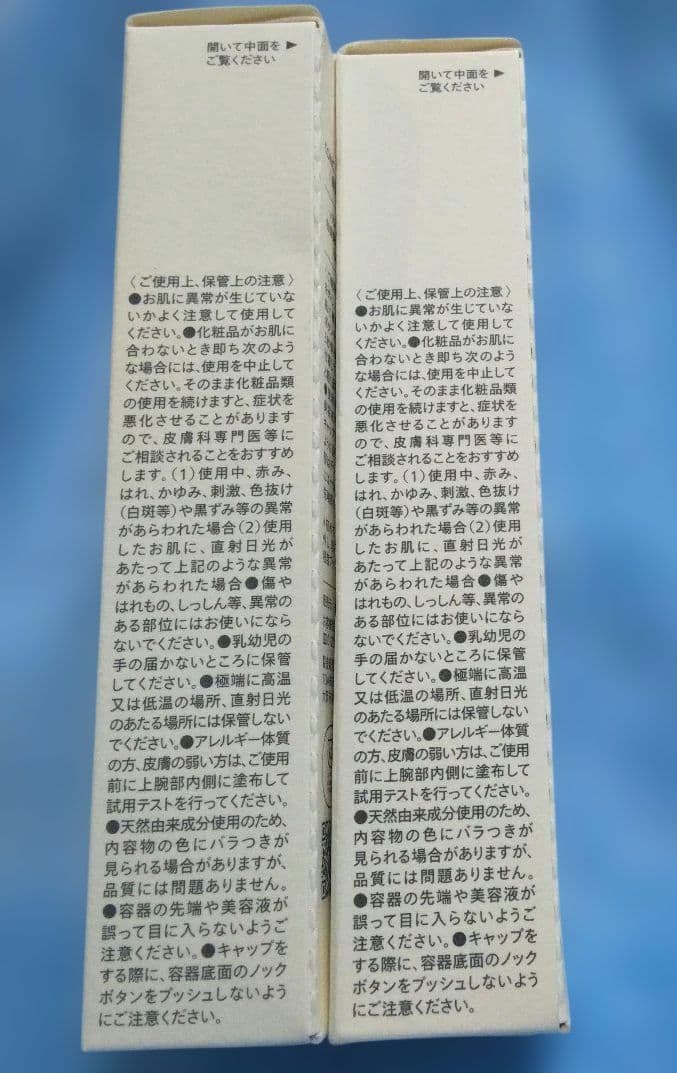 開いて中面を ▶
ご覧ください
〈ご使用上、保管上の注意〉
●お肌に異常が生じていな
いかよく注意して使用して
ください。●化粧品がお肌に
合わないとき即ち次のよう
な場合には、使用を中止して
ください。そのまま化粧品類
の使用を続けますと、症状を
悪化させることがあります
ので、皮膚科専門医等に
ご相談されることをおすすめ
します。(1)使用中、赤み、
はれ、かゆみ、刺激、色抜け
(白斑等)や黒ずみ等の異常
があらわれた場合(2)使用
したお肌に、直射日光が
あたって上記のような異常
があらわれた場合●傷や
はれもの、しっしん等、異常の
ある部位にはお使いになら
ないでください。●乳幼児の
手の届かないところに保管
してください。●極端に高温
又は低温の場所、直射日光
のあたる場所には保管しない
でください。●アレルギー体質
の方、皮膚の弱い方は、ご使用
前に上腕部内側に塗布して
試用テストを行ってください。
●天然由来成分使用のため、
内容物の色にバラつきが
見られる場合がありますが、
品質には問題ありません。
●容器の先端や美容液が
誤って目に入らないようご
注意ください。●キャップを
する際に、容器底面のノック
ボタンをプッシュしないよう
にご注意ください。
開いて中面を ▶
ご覧ください
〈ご使用上、保管上の注意〉
●お肌に異常が生じていな
いかよく注意して使用して
ください。●化粧品がお肌に
合わないとき即ち次のよう
な場合には、使用を中止して
ください。そのまま化粧品類
の使用を続けますと、症状を
悪化させることがあります
ので、皮膚科専門医等に
ご相談されることをおすすめ
します。(1)使用中、赤み、
はれ、かゆみ、刺激、色抜け
(白斑等)や黒ずみ等の異常
があらわれた場合(2)使用
したお肌に、直射日光が
あたって上記のような異常
があらわれた場合●傷や
はれもの、しっしん等、異常の
ある部位にはお使いになら
ないでください。●乳幼児の
手の届かないところに保管
してください。●極端に高温
又は低温の場所、直射日光
のあたる場所には保管しない
でください。●アレルギー体質
の方、皮膚の弱い方は、ご使用
前に上腕部内側に塗布して
試用テストを行ってください。
●天然由来成分使用のため、
内容物の色にバラつきが
見られる場合がありますが、
品質には問題ありません。
●容器の先端や美容液が
誤って目に入らないようご
注意ください。●キャップを
する際に、容器底面のノック
ボタンをプッシュしないよう
にご注意ください。